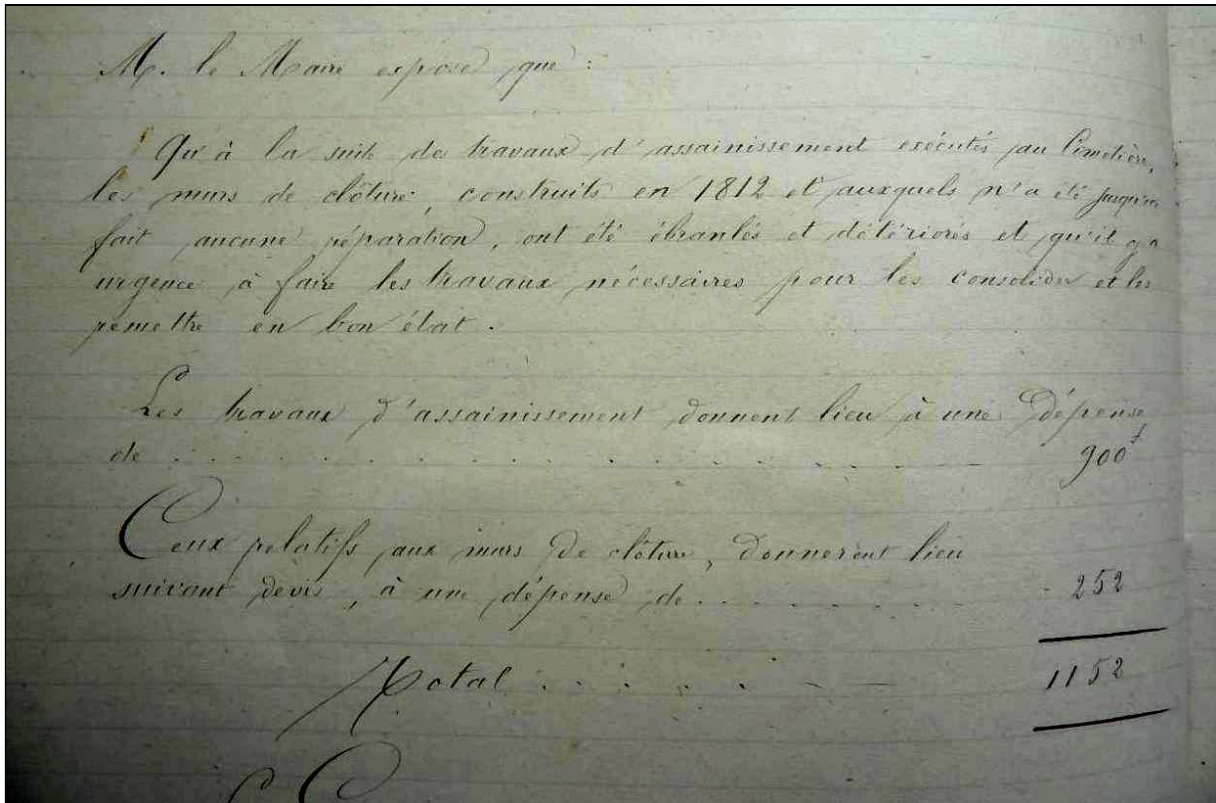 M. le Maire expose que :
Qu'à la suite des travaux d'assainissement exécutés au Cimetière,
les murs de clôture, construits en 1812 et auxquels n'a été jusqu'ici
fait aucune réparation, ont été ébranlés et détériorés et qu'il y a
urgence à faire les travaux nécessaires pour les consolider et les
remettre en bon état.
Les travaux d'assainissement donnent lieu à une dépense
de . . . . . . . . . . . . . . . . 900f
Ceux relatifs aux murs de clôture, donneront lieu
suivant devis, à une dépense de . . . . . . . . . 252
Total . . . . . . 1152